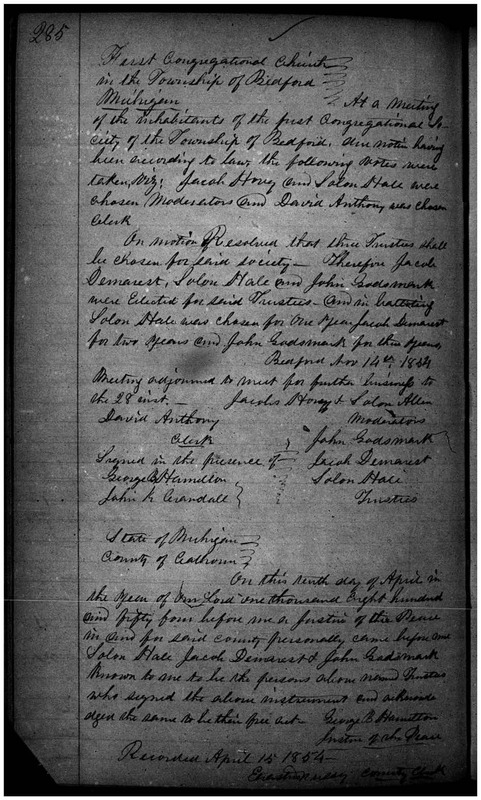 285
First Congregational Church
in the Township of Bedford
Michigan At a meeting
of the inhabitants of the first Congregational So-
ciety of the Township of Bedford, due notice having
been according to law, the following votes were
taken, Viz; Jacob Hovey and Solon Hale were
chosen Moderators and David Anthony was chosen
Clerk
On motion Resolved that three Trustees shall
be chosen for said society — Therefore Jacob
Demarest, Solon Hale and John Godsmark
were Elected for said Trustees — and in
Solon Hale was chosen for one Year Jacob Demarest
for two Years and John Godsmark for three Years,
Bedford Nov 14th 1854
Meeting adjourned to meet for further business to
the 28 inst. — Hovey & Solon Allen
David Anthony Moderators
Clerk John Godsmark
Signed in the presence of — Jacob Demarest
George B Hamilton Solon Hale
John K Crandall Trustees
State of Michigan
County of Calhoun
On this tenth day of April in
the Year of Our Lord one thousand Eight hundred
and fifty four before me a Justice of the Peace
in and for said County personally came before me
Solon Hale Jacob Demarest & John Godsmark
Known to me to be the persons above named Trustees
who signed the above instrument and acknowle
dged the same to be their free act — George B Hamilton
Justice of the Peace
Recorded April 15 1854 —
Erastus Hussey County Clerk